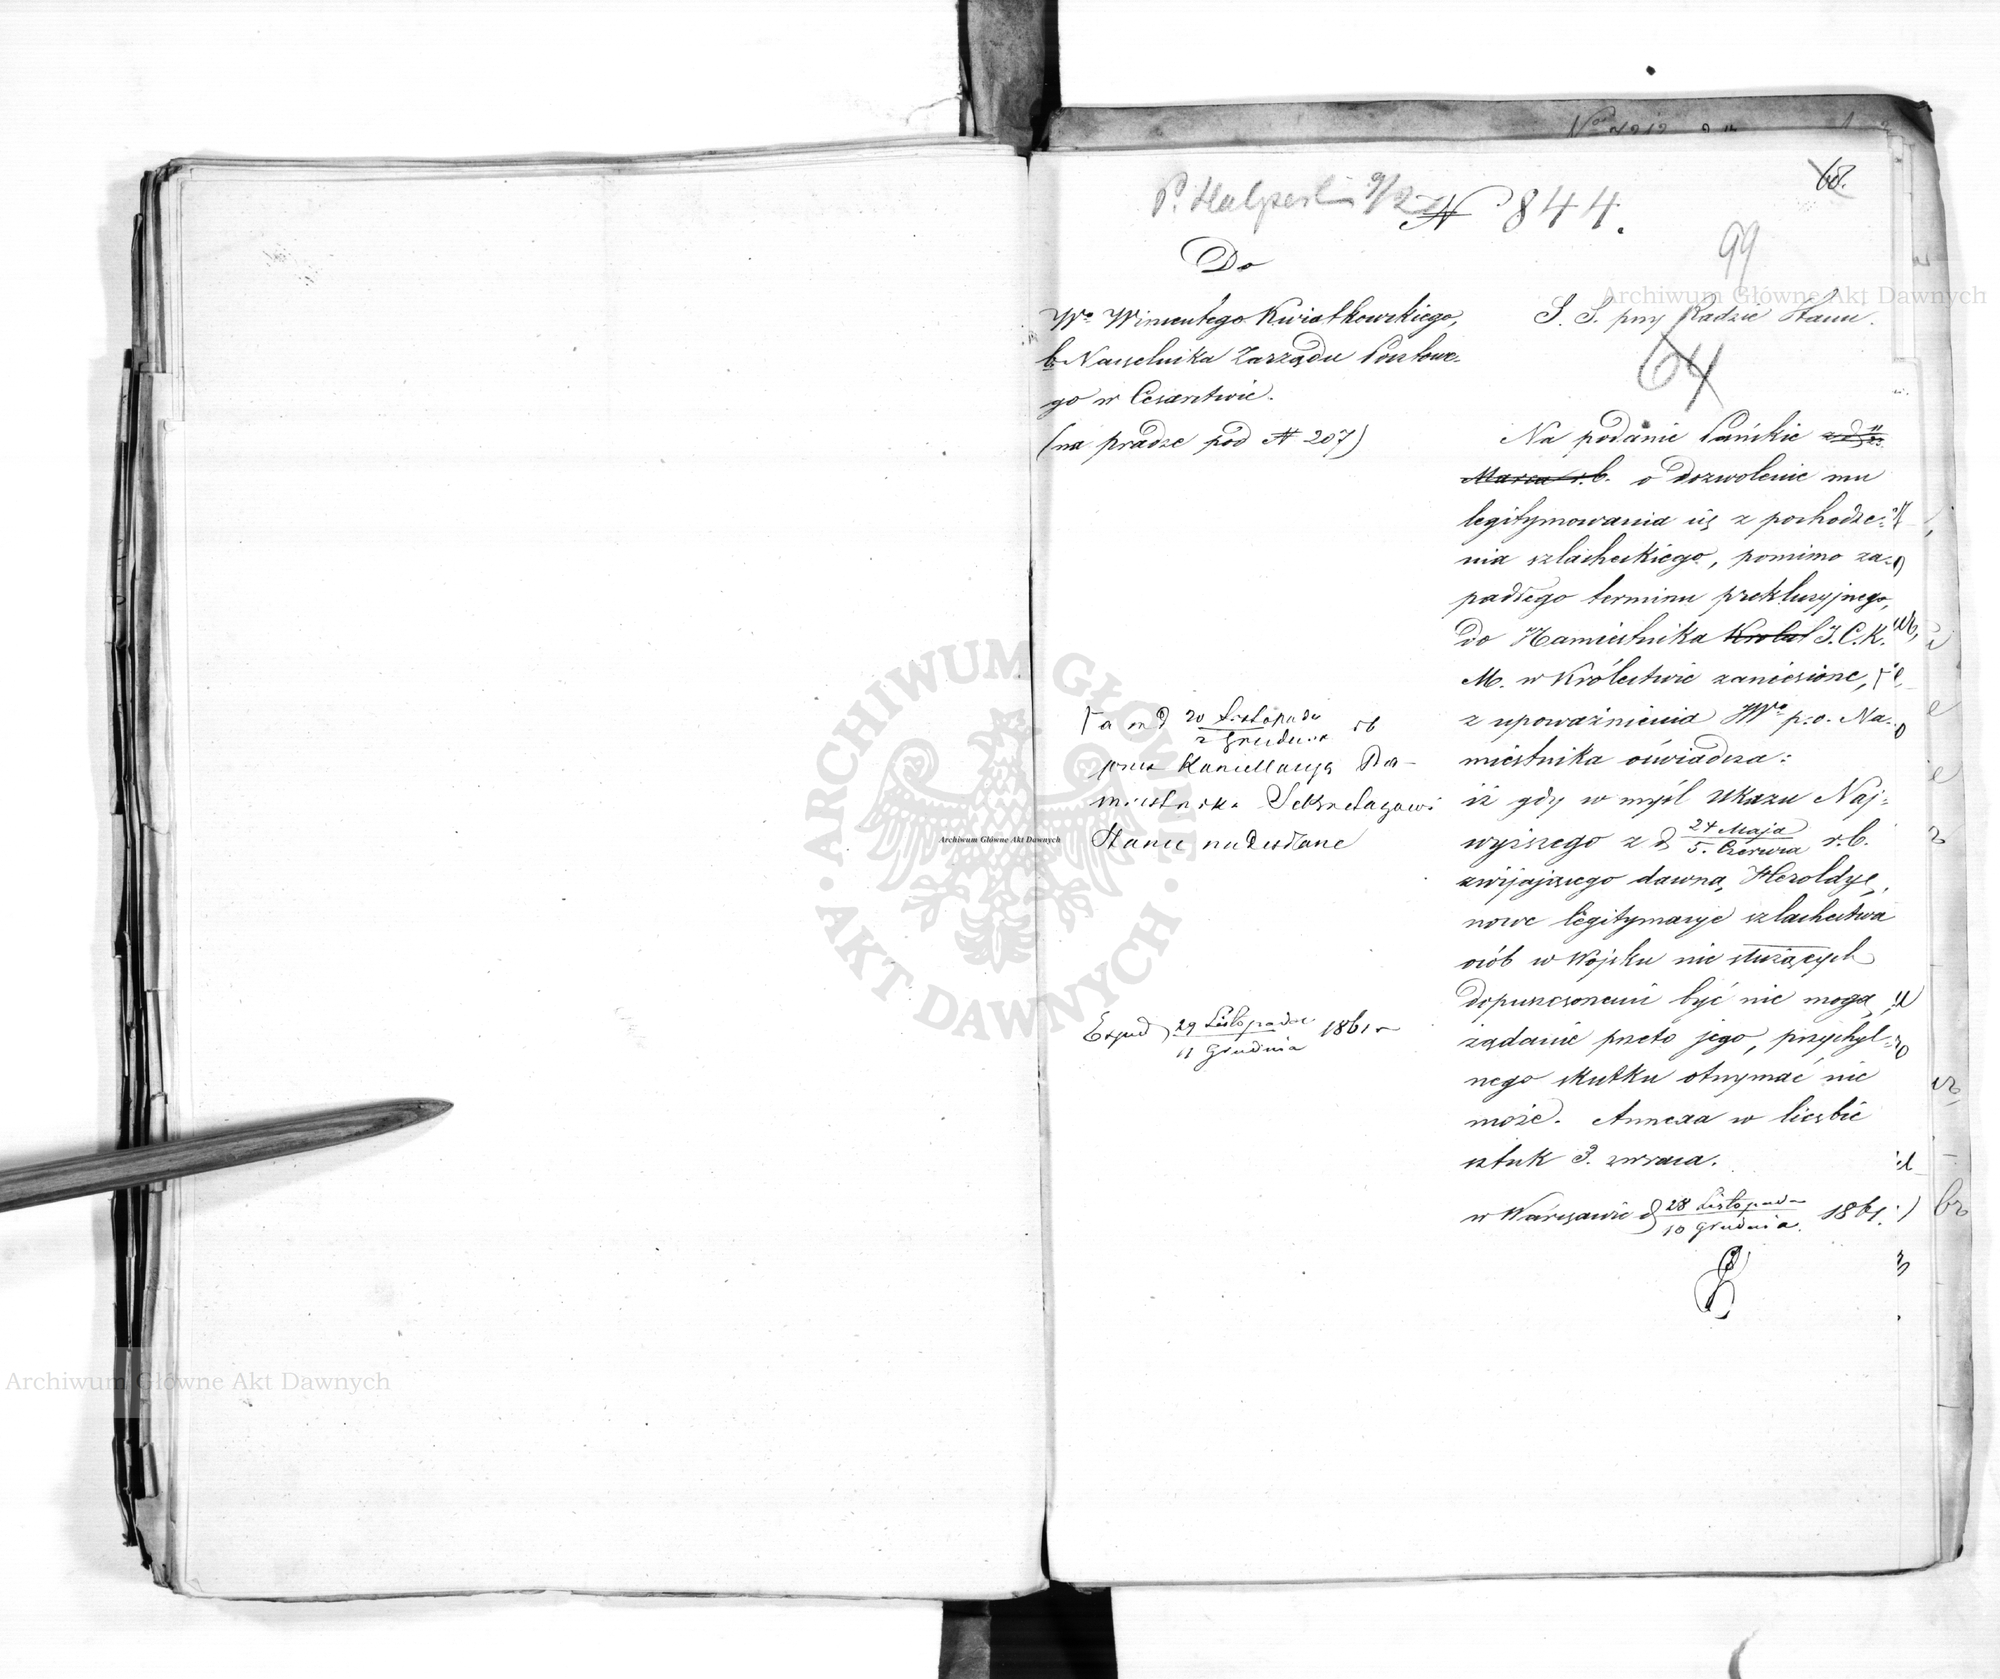 68.
P. Halpert 9/2
N 844.
99
Do
Wo Wincentego Kwiatkowskiego,
b. Naczelnika Zarządu Pocztowe-
go w Cesarstwie.
(na pradze pod N 207)
S. S. przy Radzie Stanu.
64
Na podanie Pańskie z d 11/23
Marca r.b. o dozwolenie mu
legitymowania się z pochodze-
nia szlacheckiego, pomimo za-
padłego terminu prekluzyjnego,
do Namiestnika Królest J. C. K.
M. w Królestwie zaniesione, Γ
z upoważnienia JWo p.o. Na-
miestnika oświadcza:
iż gdy w myśl Ukazu Naj-
wyższego z d 24 Maja/5. Czerwca r.b.
zwijającego dawną Heroldyę,
nowe legitymacye szlachectwa
osób w Wojsku nie służących
dopuszczonemi być nie mogą,
żądanie przeto jego, przychyl-
nego skutku otrzymać nie
może. Annexa w liczbie
sztuk 3. zwraca.
w Warszawie d 28 Listopada/10 Grudnia 1861.
Γ a w d 20 Listopada/2 Grudnia rb
przez Kancellaryą Na-
miestnika Sekretarzowi
Stanu nadesłane
Exped 29 Listopada/11 Grudnia 1861 r
Archiwum Główne Akt Dawnych
Archiwum Główne Akt Dawnych
Archiwum Główne Akt Dawnych
ARCHIWUM GŁÓWNE AKT DAWNYCH